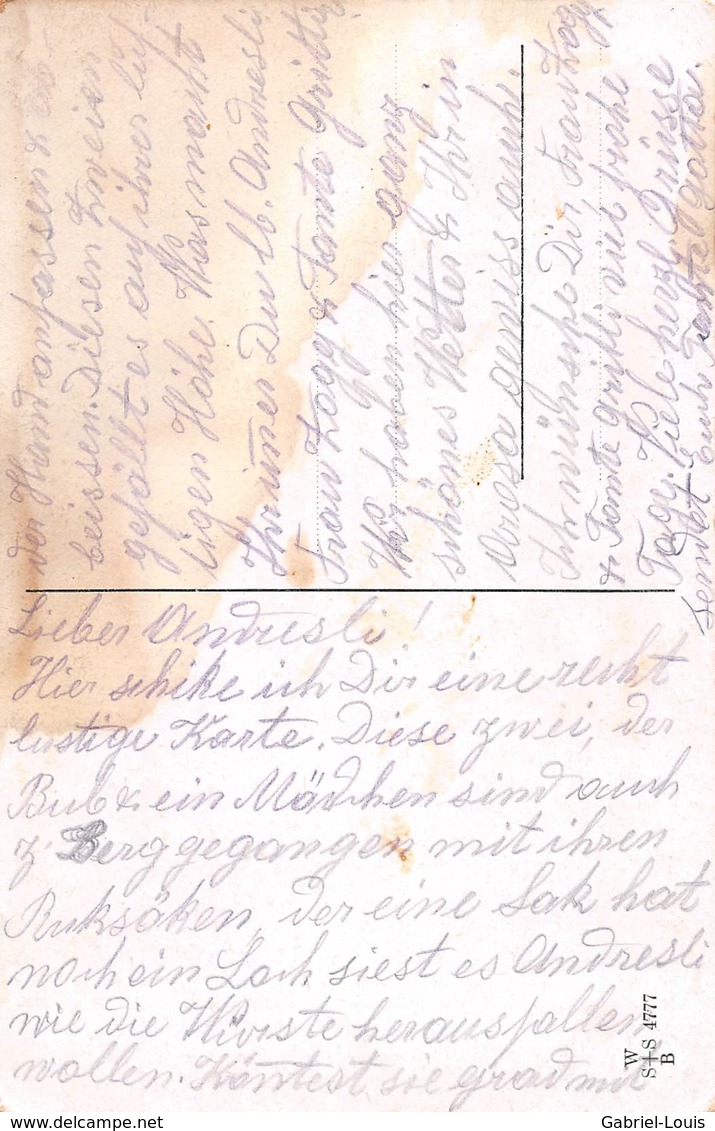 Lieber Andresli!
Hier schike ich Dir eine recht
lustige Karte. Diese zwei, der
Bub & ein Mädchen sind auch
z' Berg gegangen mit ihren
Ruksäken, der eine Sak hat
noch ein Loch siest es Andresli
wie die Würste herausfallen
wollen. Köntest sie grad mit
der Hand anfassen &
beissen. Diesen Zweien
gefällt es auf ihrer luf-
tigen Höhe. Was macht
Ihr immer Du lb. Andresli
Frau Zogg & Tante Gritli
Wir haben hier ganz
schönes Wetter & Ihr in
Arosa gewiss auch.
Ich wünsche Dir, Frau Zogg
& Tante Gritli viel frohe
Tage. Viele herzl. Grüsse
sendet Euch Gotta.
W
S+S 4777
B
Gabriel-Louis